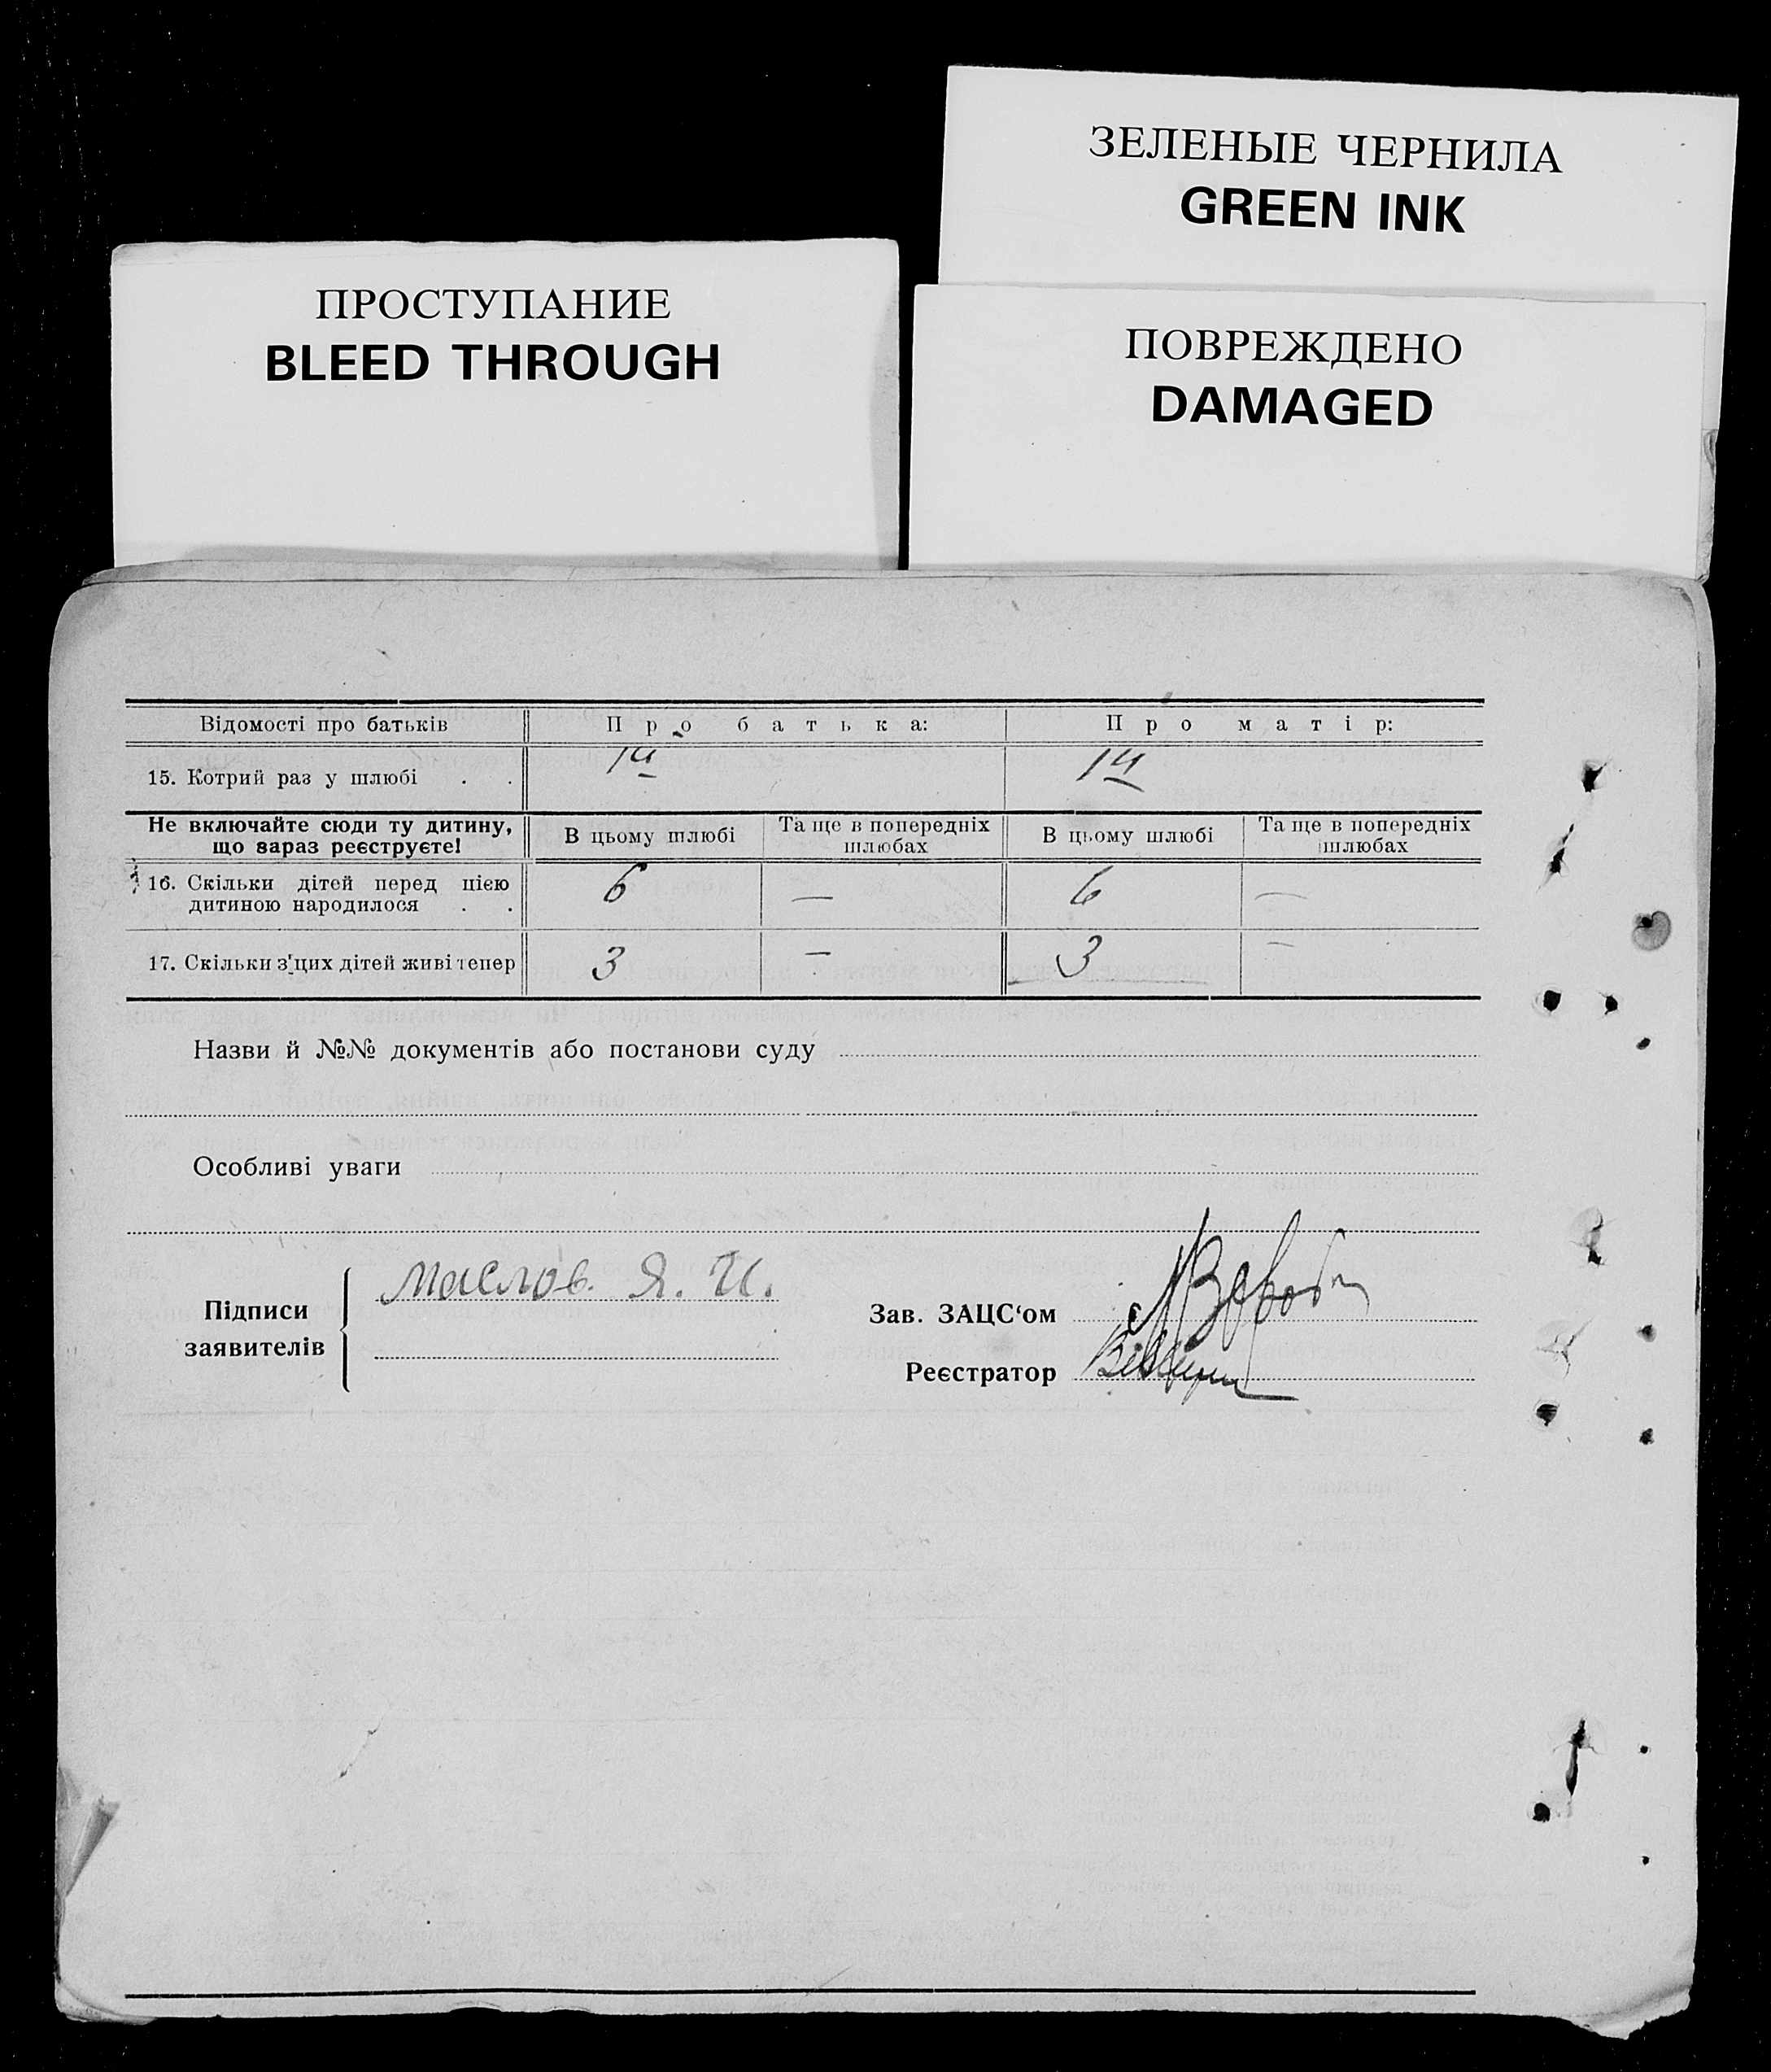 ЗЕЛЕНЫЕ ЧЕРНИЛА
GREEN INK
ПРОСТУПАНИЕ
BLEED THROUGH
ПОВРЕЖДЕНО
DAMAGED
Відомості про батьків Про батька: Про матір:
15. Котрий раз у шлюбі . . 1й 1й
Не включайте сюди ту дитину, що зараз реєструєте! В цьому шлюбі Та ще в попередніх шлюбах В цьому шлюбі Та ще в попередніх шлюбах
16. Скільки дітей перед цією дитиною народилося . . 6 — 6 —
17. Скільки з'цих дітей живі тепер 3 — 3 —
Назви й №№ документів або постанови суду
Особливі уваги
Підписи заявителів Маслов. Я. И.
Зав. ЗАЦС‘ом
Реєстратор